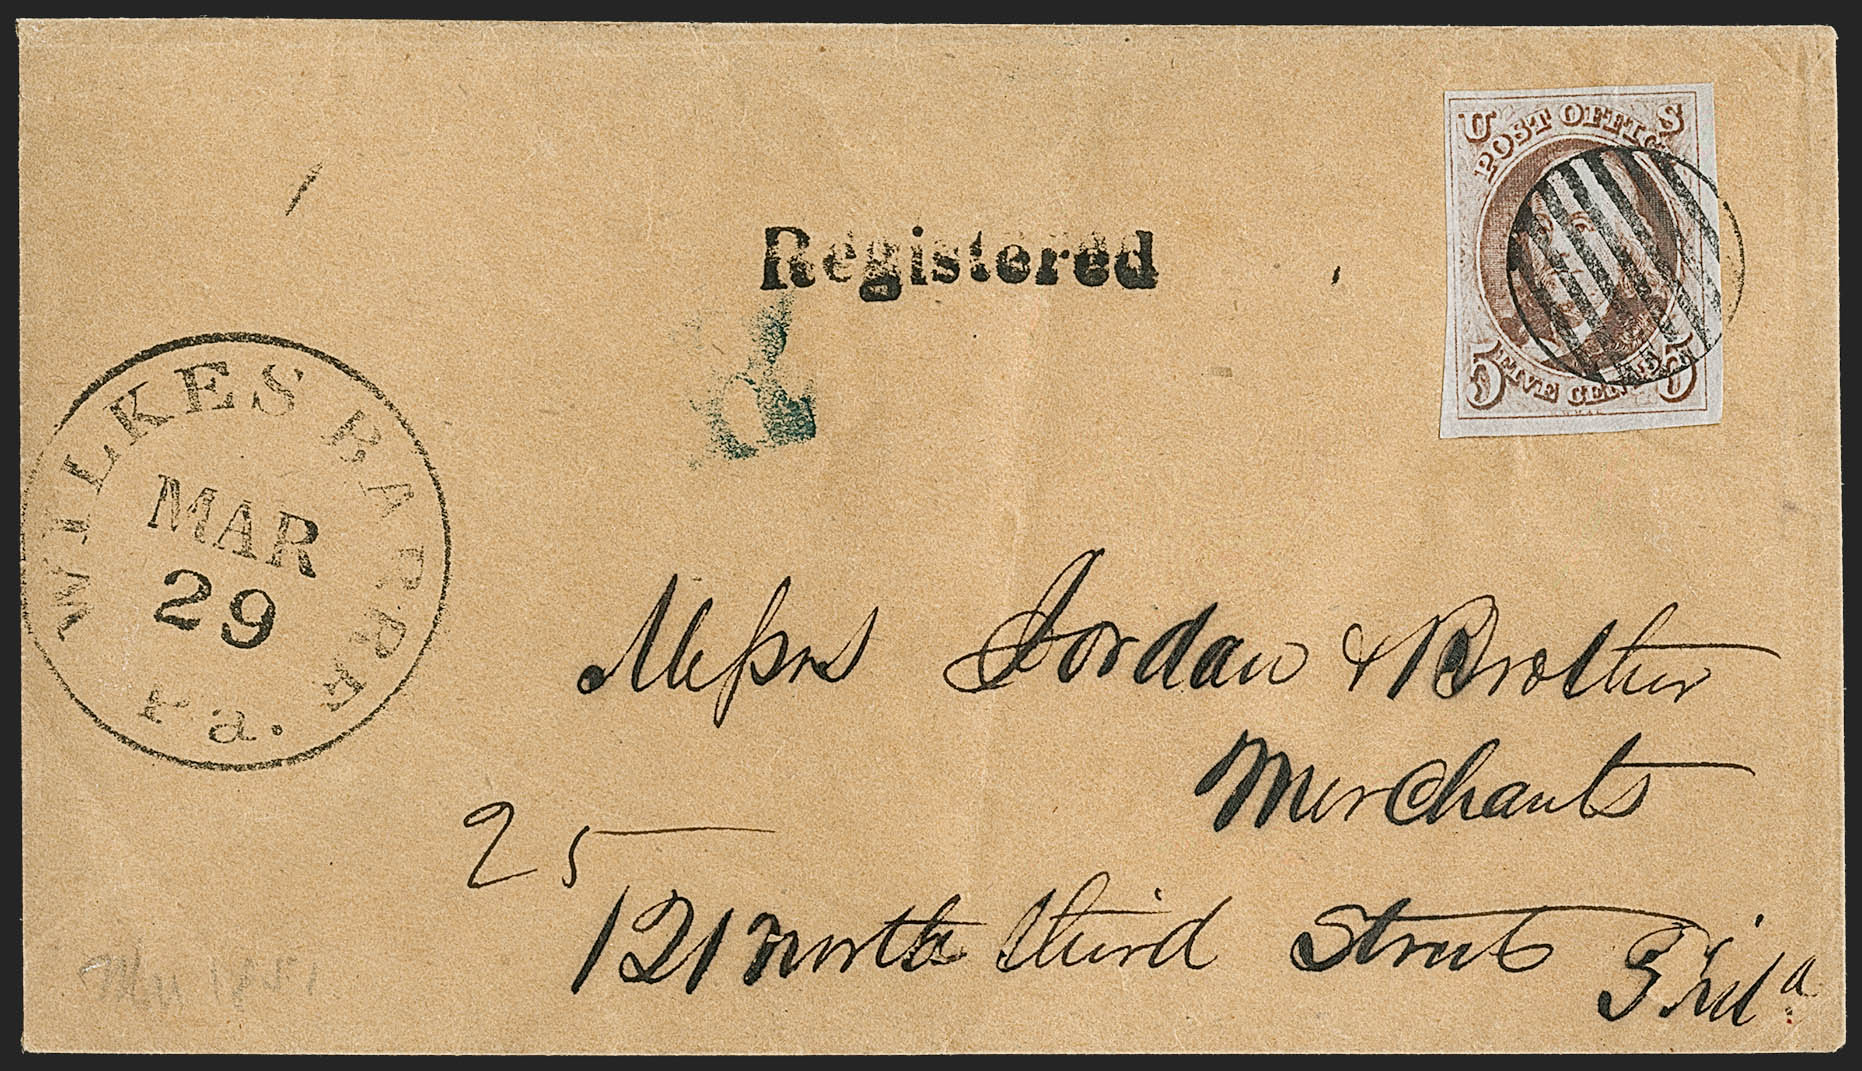 U S
POST OFFICE
5 FIVE CENTS 5
Registered
WILKES BARRE
MAR
29
Pa.
Messrs Jordan & Brother
Merchants
25
121 North third Street Phila
1851